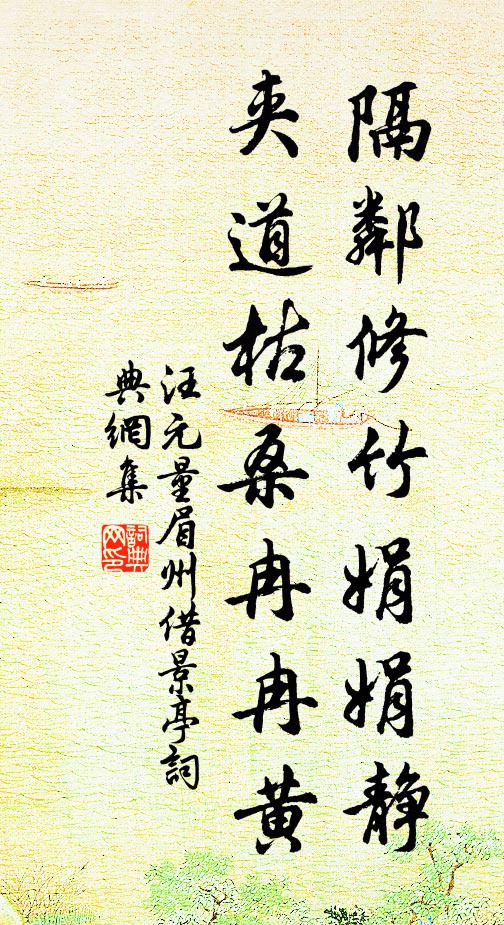 隔鄰修竹娟娟静
夾道枯桑冉冉黄
汪元量眉州借景亭詞
典網集
詞典网印